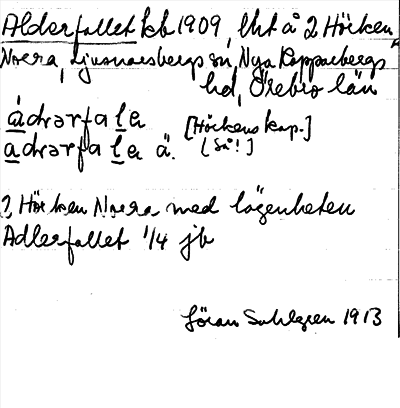 Alderfallet kb 1909, lht å 2 Höcken
Norra, Ljusnarsbergs sn, Nya Kopparbergs
hd, Örebro län
ádərərfalen [Höckens kap.]
adərərfalen ä. [Så!]
2 Höcken Norra med lägenheten
Adlerfallet 1/4 jb
Göran Sahlgren 1913